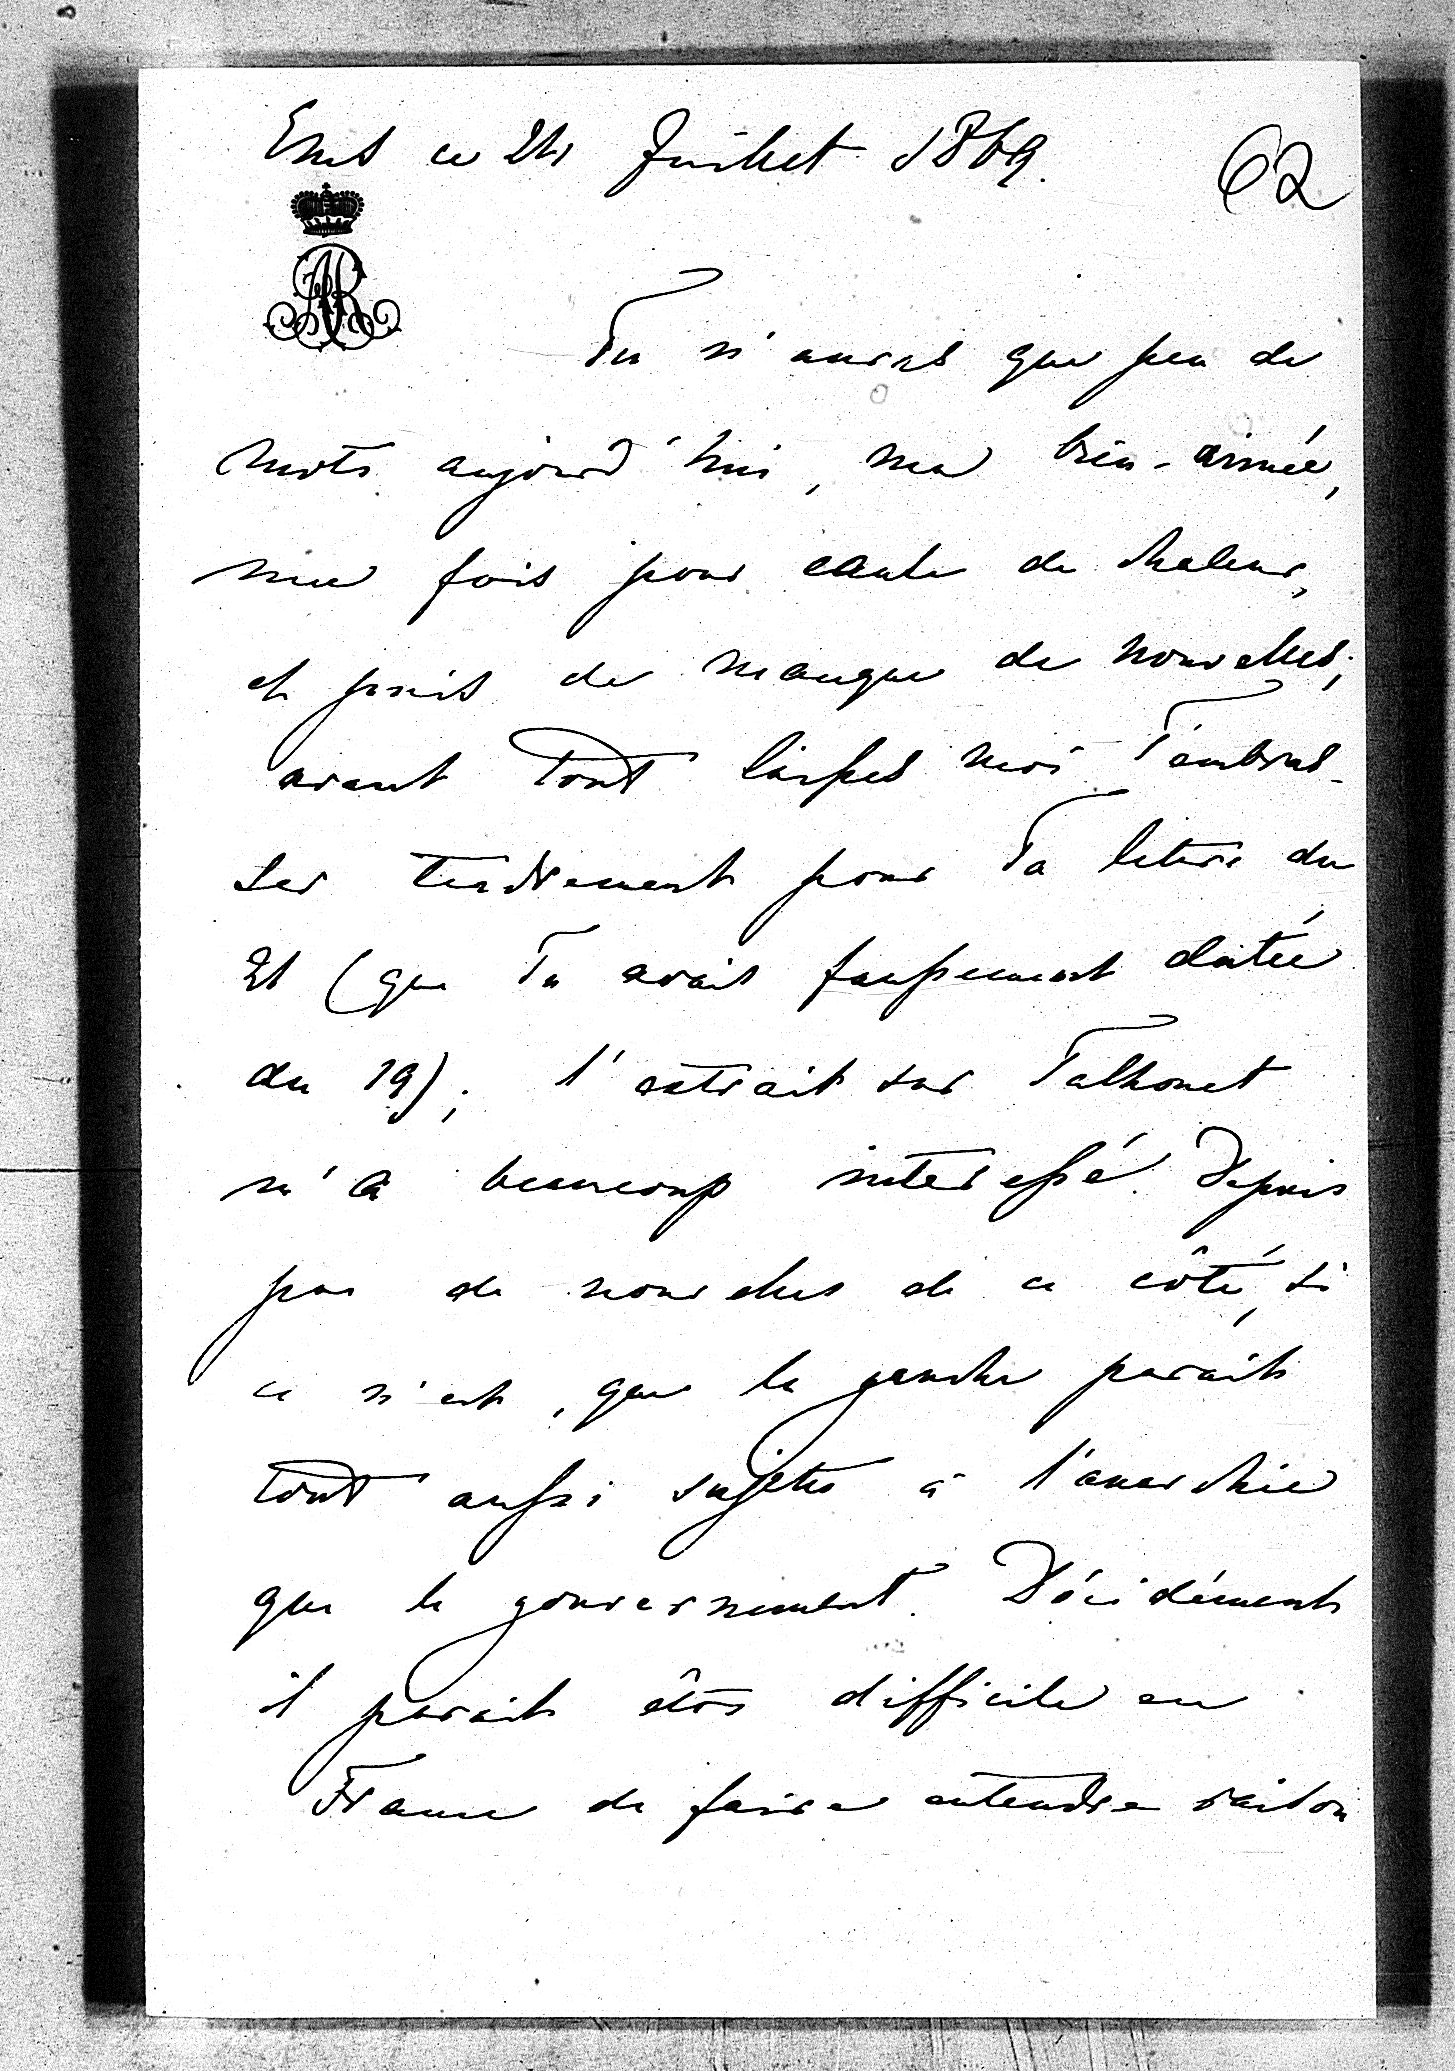 Ems ce 24 Juillet 1869.
62
AR
Tu n'auras que peu de
mots aujourd'hui, ma bien-aimée,
une fois pour cause de chaleur,
et puis de manque de nouvelles;
avant tout laisses moi T'embras-
ser tendrement pour Ta lettre du
21 (que Tu avais faussement datée
du 19); l'extrait sur Talhouet
m'a beaucoup interessé. Depuis
pas de nouvelles de ce côté, si
ce n'est, que la gauche parait
tout aussi sujette à l'anarchie
que le gouvernement. Décidément
il parait être difficile en
France de faire entendre raison